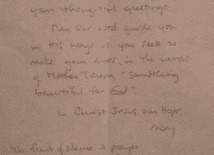 your thoughtful greetings.
May Our Lord guide you
in His ways as you seek to
make your lives, in the words
of Mother Teresa, "something
beautiful for God".
In Christ Jesus our Hope,
The fruit of silence is prayer